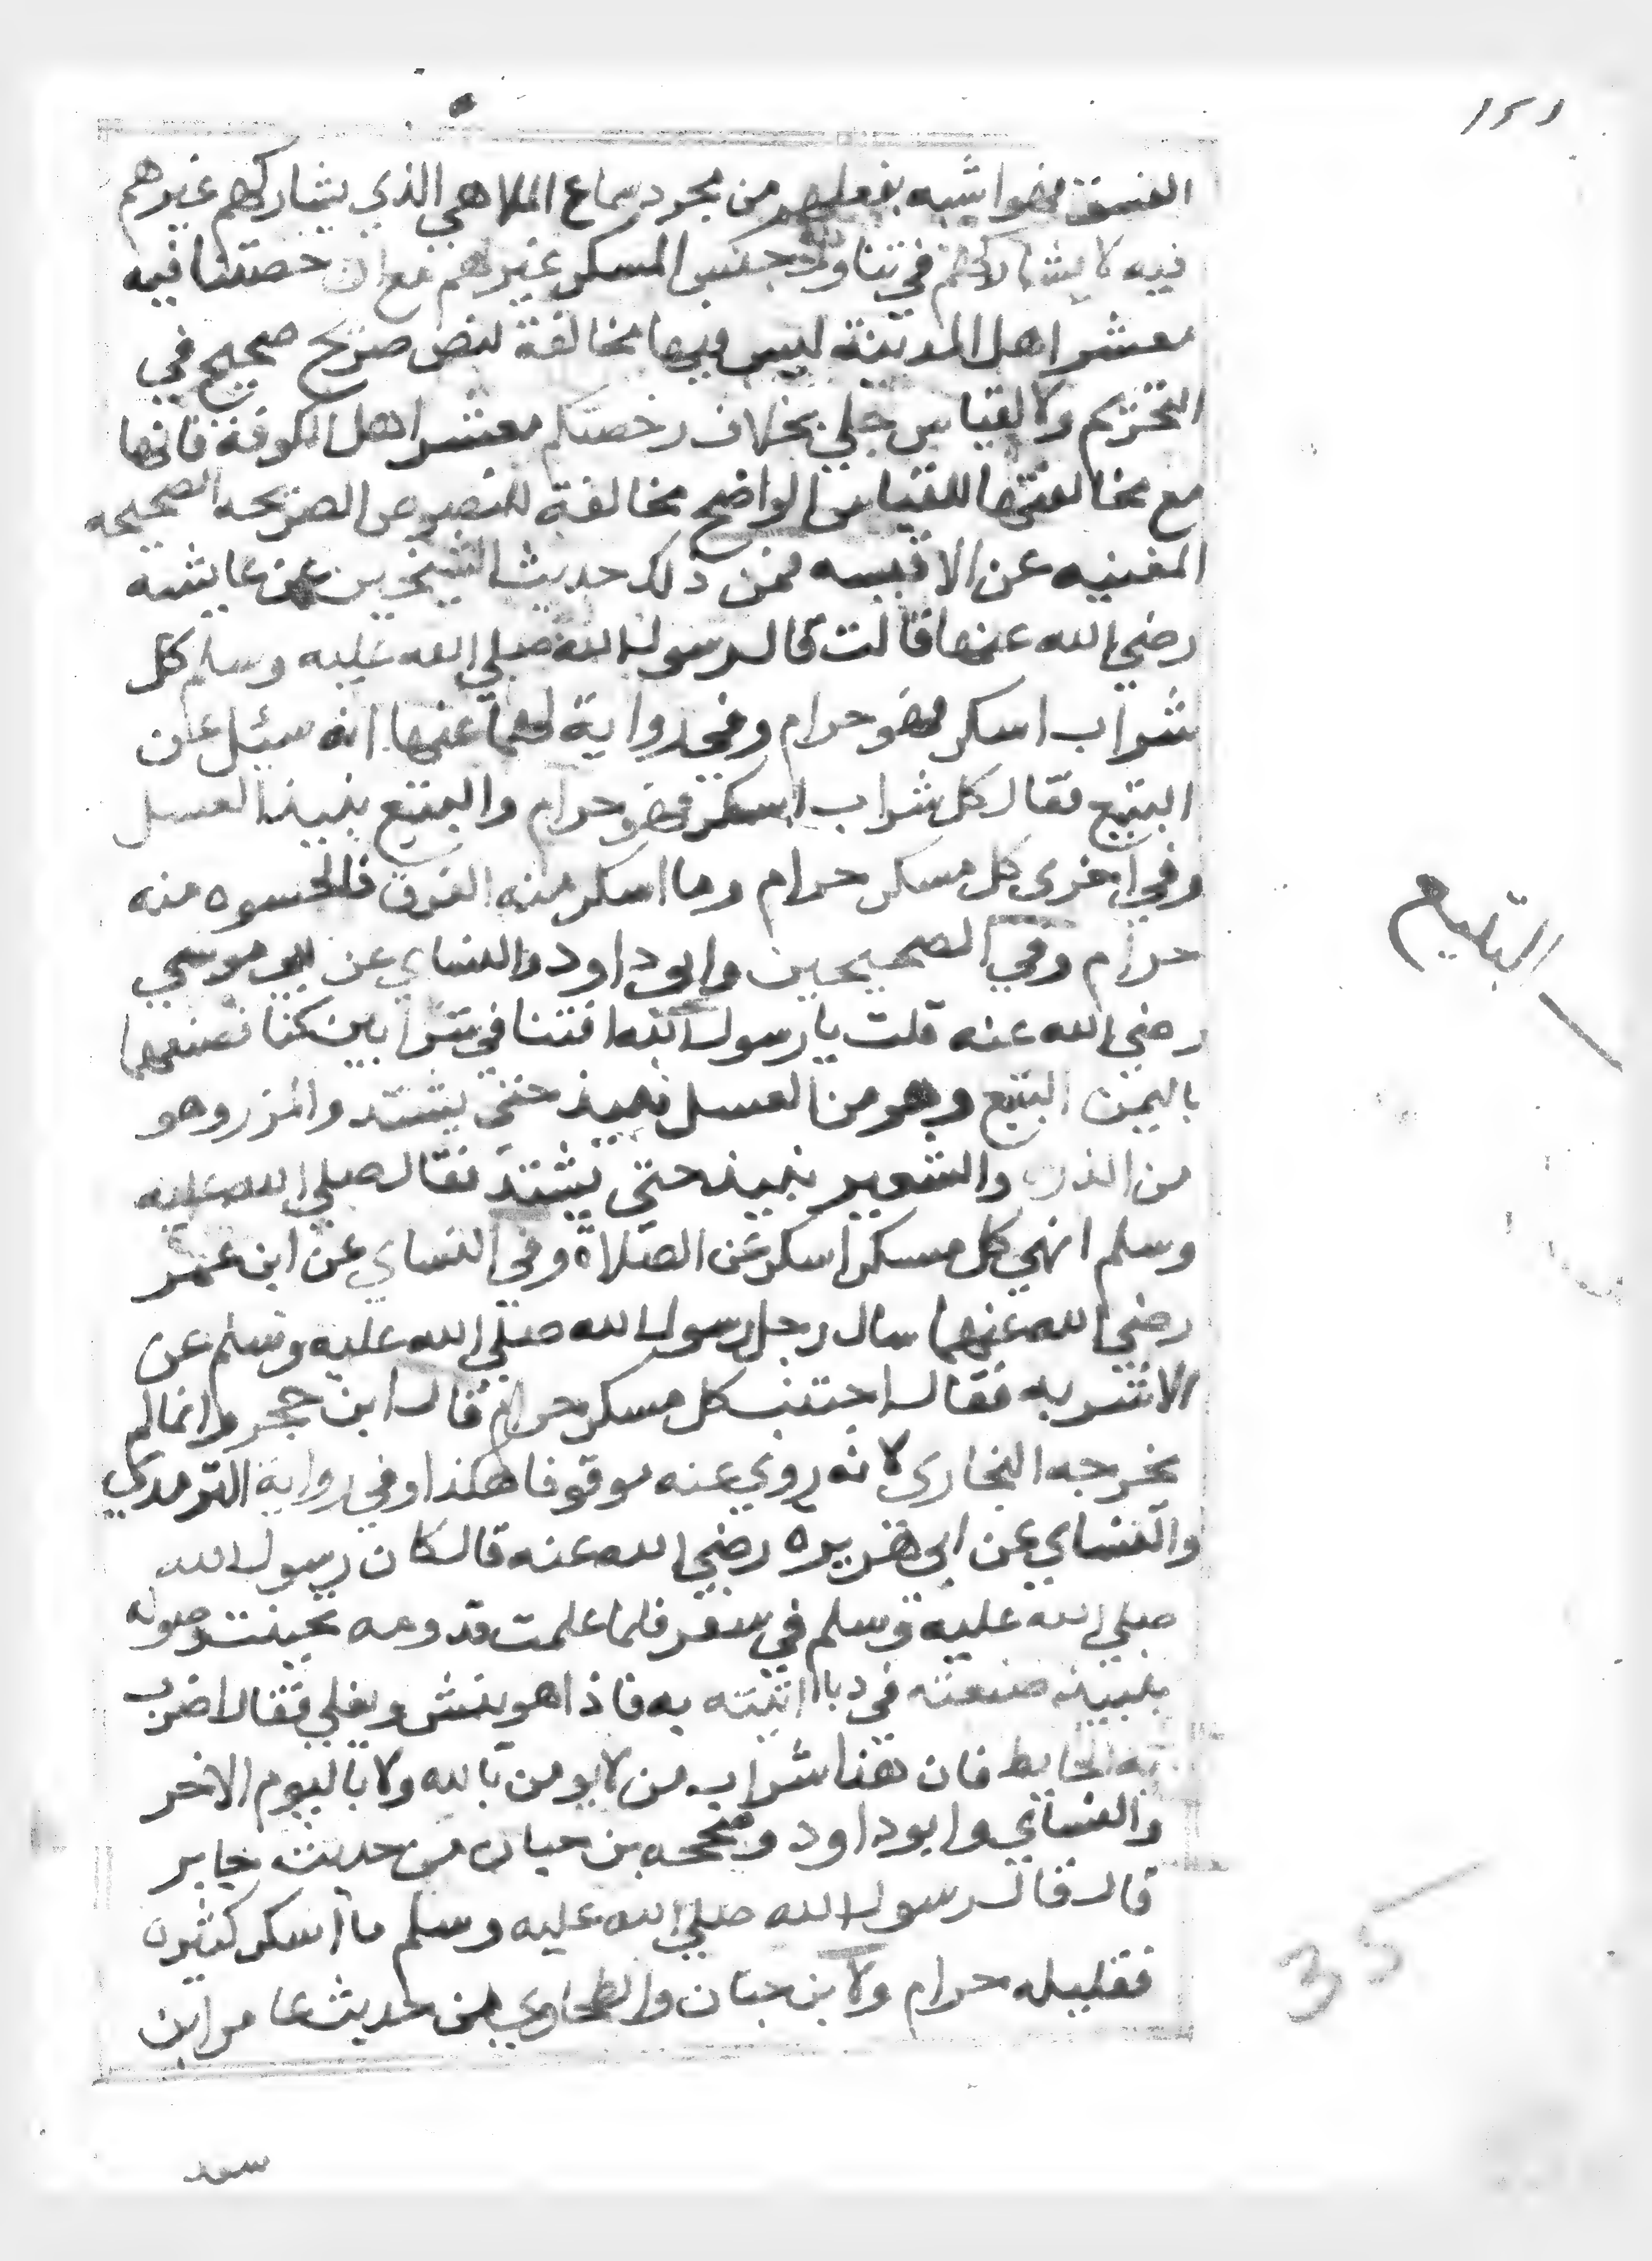 ١٥١
الفسق فهو اشبه بفعلهم من مجرد سماع الملاهي الذي يشاركهم غيرهم
فيه لا يشاركهم في تناول جنس المسكر غيرهم مع ان حصتنا فيه
معشر اهل المدينة ليس فيها مخالفة لنص صريح صحيح في
التحريم ولا لقياس جلي بخلاف رخصتكم معشر اهل الكوفة فانها
مع مخالفتها للقياس الواضح مخالفة للنصوص الصريحه الصحيحه
المغنيه عن الاقيسه فمن ذلك حديث الشيخين عن عايشه
رضي الله عنها قالت قال رسول الله صلي الله عليه وسلم كل
شراب اسكر فهو حرام وفي رواية لهما عنها انه سيئل عن
البتع فقال كل شراب اسكر فهو حرام والبتع نبيذ العسل
وفي اخرى كل مسكر حرام وما اسكر منه الفرق فالحسوه منه
حرام وفي الصحيحين وابو داود والنساي عن ابو موسي
رضي الله عنه قلت يا رسول الله افتنا في شرابين كنا نصنعهما
باليمن البتع وهو من العسل نبيذ حتي يشتد والمزر وهو
من الذره والشعير نبيذ حتي يشتد فقال صلي الله عليه
وسلم انهي كل مسكر اسكر عن الصلاة وفي النساي عن ابن عمر
رضي الله عنهما سال رجل رسول الله صلي الله عليه وسلم عن
الاشربه فقال اجتنب كل مسكر حرام قال ابن حجر وانما لم
يخرجه البخاري لانه روي عنه موقوفا هكذا وفي رواية الترمدي
والنساي عن ابي هريره رضي الله عنه قال كان رسول الله
صلي الله عليه وسلم في سفر فلما علمت قدومه تحينت وصوله
بنبيذ صنعته في دبا اتيته به فاذا هو ينش ويغلي فقال اضرب
به الحايط فان هذا شراب من لا يومن بالله ولا باليوم الاخر
والنساي وابو داود وصححه بن حبان من حديث جابر
قال قال رسول الله صلي الله عليه وسلم ما اسكر كثيره
فقليله حرام ولابن حبان والطحاوي من حديث عامر ابن
سعد
35